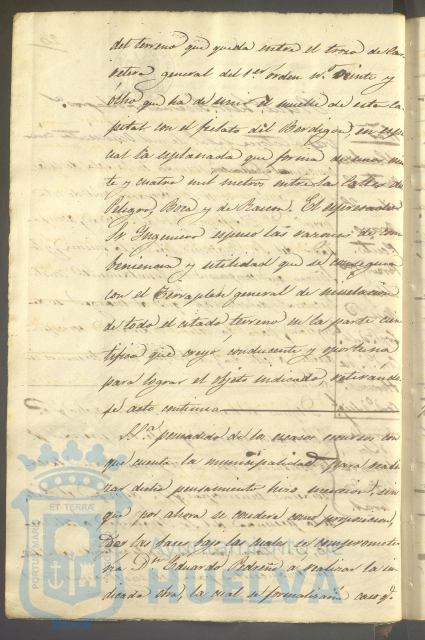 del terreno que queda entre el trozo de Ca-
rretera general del 1er orden nº Veinte y
ocho que ha de unir el muelle de esta ca-
pital con el fielato del Berdigon, en espe-
cial la esplanada que forma de unos
te y cuatro mil metros entre las Calles de
Peligro, Boza y de Rascon. El espresado
Sr Ingeniero espuso las razones de con-
beniencia y utilidad que se consegia
con el Terraplen general de nivelacion
de todo el citado terreno en la parte cien-
tifica que creyo conducente y oportuna
para lograr el objeto indicado, retirando-
se acto continuo.
S.Sª persuadido de los escasos recursos con
que cuenta la municipalidad para reali-
zar dicho pensamiento hizo mencion, sin
que por ahora se considere como proposicion,
de las bases bajo las cuales se comprometie-
ra Dn Eduardo Pedreño a realizar la in-
dicada obra, la cual se formalizaria caso qe
PORTUS MARIS ET TERRAE
Ayuntamiento de
HUELVA